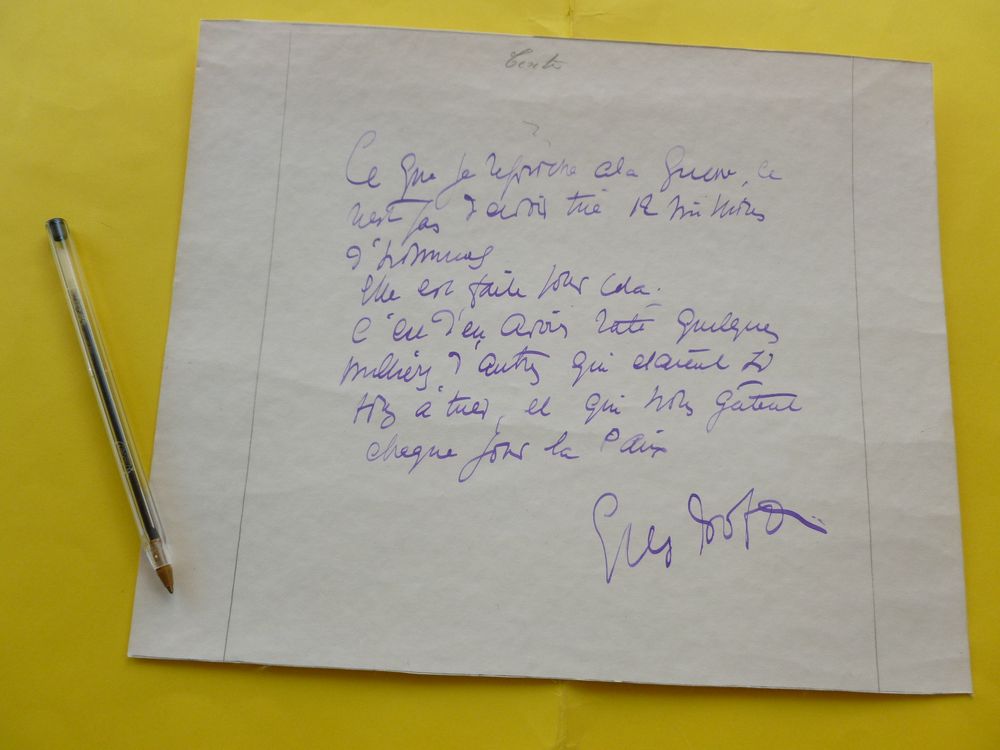 Texte
Ce que je reproche à la Guerre, ce
n'est pas d'avoir tué 12 millions
d'hommes
Elle est faite pour cela.
C'est d'en avoir raté quelques
milliers d'autres qui étaient
à tuer, et qui nous gâtent
chaque jour la Paix